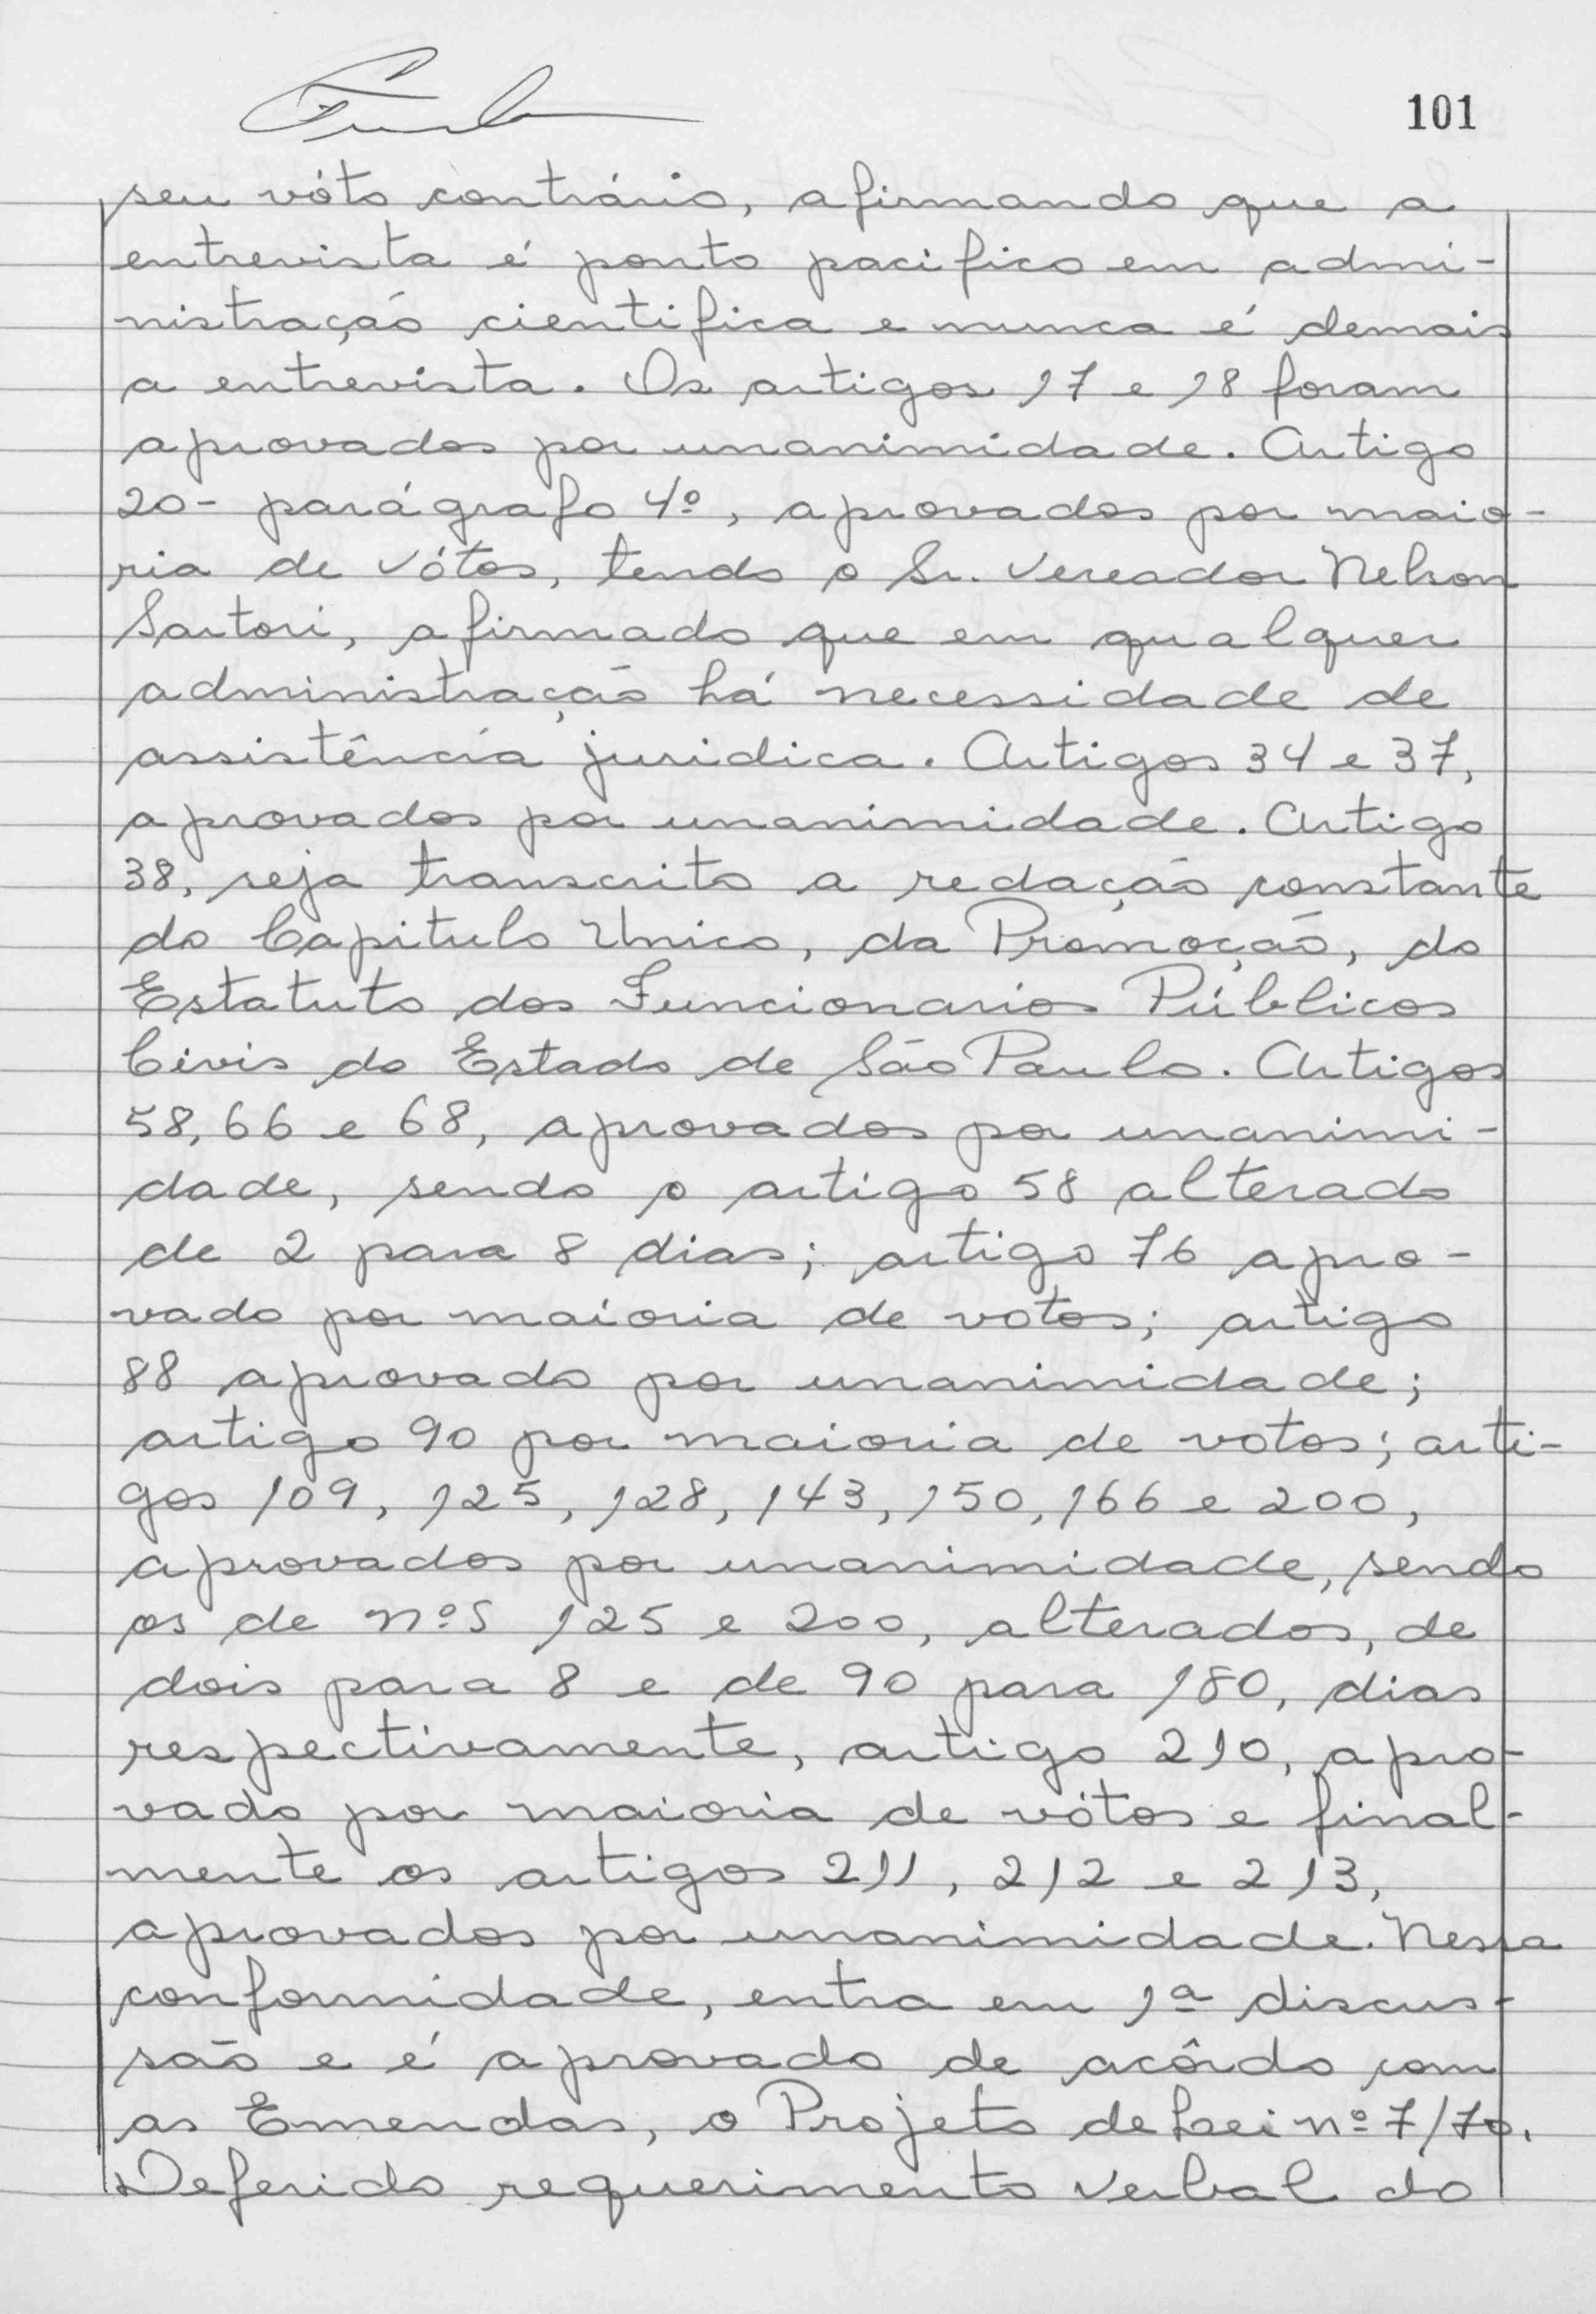 101
seu vóto contrário, afirmando que a
entrevista é ponto pacifico em admi-
nistração cientifica e nunca é demais
a entrevista. Os artigos 17 e 18 foram
aprovados por unanimidade. Artigo
20- parágrafo 4º, aprovados por maio-
ria de vótos, tendo o Sr. Vereador Nelson
Sartori, afirmado que em qualquer
administração há necessidade de
assistência juridica. Artigos 34 e 37,
aprovados por unanimidade. Artigo
38, seja transcrito a redação constante
do Capitulo Unico, da Promoção, do
Estatuto dos Funcionarios Públicos
Civis do Estado de São Paulo. Artigos
58, 66 e 68, aprovados por unanimi-
dade, sendo o artigo 58 alterado
de 2 para 8 dias; artigo 76 apro-
vado por maioria de votos; artigo
88 aprovado por unanimidade;
artigo 90 por maioria de votos; arti-
gos 109, 125, 128, 143, 150, 166 e 200,
aprovados por unanimidade, sendo
os de nºs 125 e 200, alterados, de
dois para 8 e de 90 para 180, dias
respectivamente, artigo 210, apro-
vado por maioria de vótos e final-
mente os artigos 211, 212 e 213,
aprovados por unanimidade. Nessa
conformidade, entra em 1ª discus-
são e é aprovado de acôrdo com
as Emendas, o Projeto de Lei nº 7/70.
Deferido requerimento verbal do